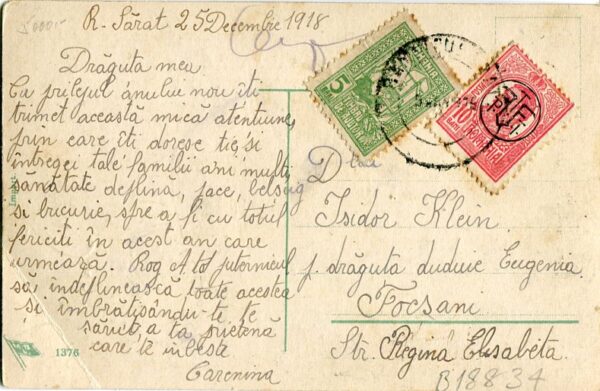 R. Sărat 25 Decembre 1918
Drăguta mea
Cu prilejul anului nou iti
trimet această mică atentiune,
prin care iti doresc tie, si
intregei tale familii ani multi
sănătate deplina, pace, belsug
si bucurie, spre a fi cu totul
fericiti în acest an care
urmează. Rog A tot puternicul
să indeplinească toate acestea
si îmbrătisându-te te
sărut, a ta prietenă
care te iubeste
1376
5
10
Isidor Klein
p. drăguta duduie Eugenia
Focsani
Str. Regină Elisabeta
B18834